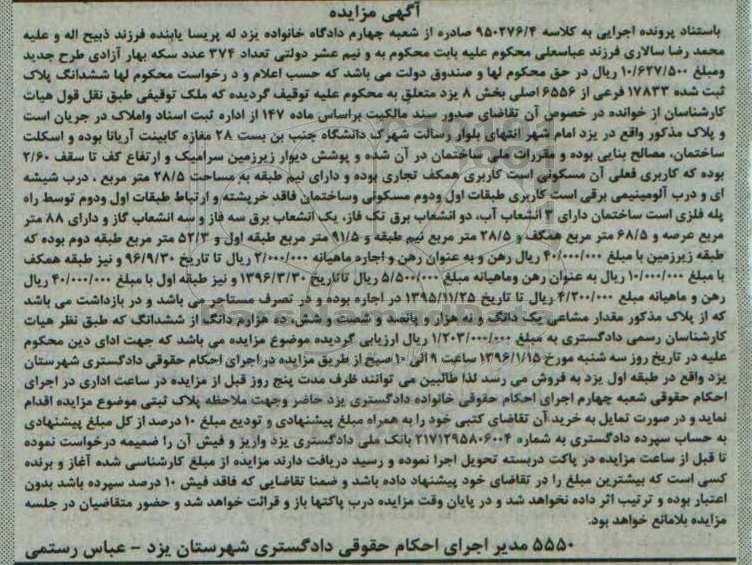 آگهی مزایده
باستناد پرونده اجرایی به کلاسه ۹۵۰۲۷۶/۴ صادره از شعبه چهارم دادگاه خانواده یزد له پریسا یابنده فرزند ذبیح اله و علیه
محمد رضا سالاری فرزند عباسعلی محکوم علیه بابت محکوم به و نیم عشر دولتی تعداد ۳۷۴ عدد سکه بهار آزادی طرح جدید
ومبلغ ۱۰/۶۲۷/۵۰۰ ریال در حق محکوم لها و صندوق دولت می باشد که حسب اعلام و د رخواست محکوم لها ششدانگ پلاک
ثبت شده ۱۷۸۳۳ فرعی از ۶۵۵۶ اصلی بخش ۸ یزد متعلق به محکوم علیه توقیف گردیده که ملک توقیفی طبق نقل قول هیات
کارشناسان از خوانده در خصوص آن تقاضای صدور سند مالکیت براساس ماده ۱۴۷ از اداره ثبت اسناد واملاک در جریان است
و پلاک مذکور واقع در یزد امام شهر انتهای بلوار رسالت شهرک دانشگاه جنب بن بست ۲۸ مغازه کابینت آریانا بوده و اسکلت
ساختمان، مصالح بنایی بوده و مقررات ملی ساختمان در آن شده و پوشش دیوار زیرزمین سرامیک و ارتفاع کف تا سقف ۲/۶۰
بوده که کاربری فعلی آن مسکونی است کاربری همکف تجاری بوده و دارای نیم طبقه به مساحت ۲۸/۵ متر مربع ، درب شیشه
ای و درب آلومینیمی برقی است کاربری طبقات اول ودوم مسکونی وساختمان فاقد خرپشته و ارتباط طبقات اول ودوم توسط راه
پله فلزی است ساختمان دارای ۳ انشعاب آب، دو انشعاب برق تک فاز، یک انشعاب برق سه فاز و سه انشعاب گاز و دارای ۸۸ متر
مربع عرصه و ۶۸/۵ متر مربع همکف و ۲۸/۵ متر مربع نیم طبقه و ۹۱/۵ متر مربع طبقه اول و ۵۲/۳ متر مربع طبقه دوم بوده که
طبقه زیرزمین با مبلغ ۴۰/۰۰۰/۰۰۰ ریال رهن و به عنوان رهن و اجاره ماهیانه ۲/۰۰۰/۰۰۰ ریال تا تاریخ ۹۶/۹/۳۰ و نیز طبقه همکف
با مبلغ ۱۰/۰۰۰/۰۰۰ ریال به عنوان رهن وماهیانه مبلغ ۵/۵۰۰/۰۰۰ ریال تاتاریخ ۱۳۹۶/۳/۳۰ و نیز طبقه اول با مبلغ ۴۰/۰۰۰/۰۰۰ ریال
رهن و ماهیانه مبلغ ۴/۲۰۰/۰۰۰ ریال تا تاریخ ۱۳۹۵/۱۱/۲۵ در اجاره بوده و در تصرف مستاجر می باشد و در بازداشت می باشد
که از پلاک مذکور مقدار مشاعی یک دانگ و نه هزار و پانصد و شصت و شش ده هزارم دانگ از ششدانگ که طبق نظر هیات
کارشناسان رسمی دادگستری به مبلغ ۱/۲۰۳/۰۰۰/۰۰۰ ریال ارزیابی گردیده موضوع مزایده می باشد که جهت ادای دین محکوم
علیه در تاریخ روز سه شنبه مورخ ۱۳۹۶/۱/۱۵ ساعت ۹ الی ۱۰ صبح از طریق مزایده در اجرای احکام حقوقی دادگستری شهرستان
یزد واقع در طبقه اول یزد به فروش می رسد لذا طالبین می توانند ظرف مدت پنج روز قبل از مزایده در ساعت اداری در اجرای
احکام حقوقی شعبه چهارم اجرای احکام حقوقی خانواده دادگستری یزد حاضر وجهت ملاحظه پلاک ثبتی موضوع مزایده اقدام
نماید و در صورت تمایل به خرید آن تقاضای کتبی خود را به همراه مبلغ پیشنهادی و تودیع مبلغ ۱۰ درصد از کل مبلغ پیشنهادی
به حساب سپرده دادگستری به شماره ۲۱۷۱۲۹۵۸۰۶۰۰۴ بانک ملی دادگستری یزد واریز و فیش آن را ضمیمه درخواست نموده
تا قبل از ساعت مزایده در پاکت دربسته تحویل اجرا نموده و رسید دریافت دارند مزایده از مبلغ کارشناسی شده آغاز و برنده
کسی است که بیشترین مبلغ را در تقاضای خود پیشنهاد داده باشد و ضمنا تقاضایی که فاقد فیش ۱۰ درصد سپرده باشد بدون
اعتبار بوده و ترتیب اثر داده نخواهد شد و در پایان وقت مزایده درب پاکتها باز و قرائت خواهد شد و حضور متقاضیان در جلسه
مزایده بلامانع خواهد بود.
۵۵۵۰ مدیر اجرای احکام حقوقی دادگستری شهرستان یزد - عباس رستمی